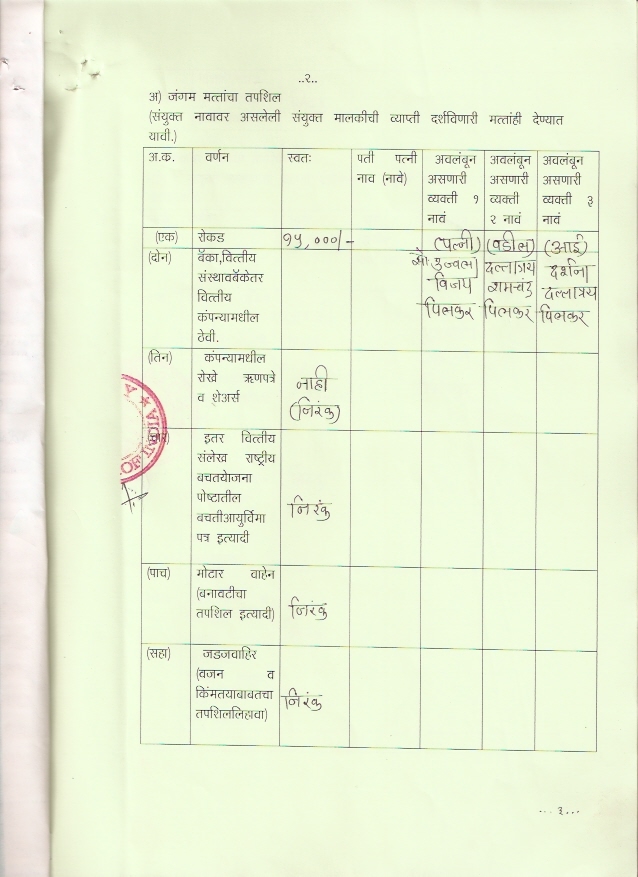 ..२..
अ) जंगम मत्तांचा तपशिल
(संयुक्त नावावर असलेली संयुक्त मालकीची व्याप्ती दर्शविणारी मत्तांही देण्यात
यावी.)
अ.क. वर्णन स्वतः पती पत्नी नाव (नावे) अवलंबून असणारी व्यक्ती १ नावं अवलंबून असणारी व्यक्ती २ नावं अवलंबून असणारी व्यक्ती ३ नावं
(एक) रोकड १५,०००/- (पत्नी) (वडील) (आई)
(दोन) बॅका,वित्तीय
संस्थावबॅकेतर
वित्तीय
कंपन्यामधील
ठेवी.
सौ. उज्वला
विजय
पिलकर
दत्तात्रय
रामचंद्र
पिलकर
दर्शना
दत्तात्रय
पिलकर
(तिन) कंपन्यामधील
रोखे ऋणपत्रे
व शेअर्स
नाही
(निरंक)
इतर वित्तीय
संलेख राष्ट्रीय
बचतयोजना
पोष्टातील
बचतीआयुर्विमा
पत्र इत्यादी
निरंक
(पाच) मोटार वाहेन
(बनावटीचा
तपशिल इत्यादी)
निरंक
(सहा) जडजवाहिर
(वजन व
किंमतयाबाबतचा
तपशिललिहावा)
निरंक
... ३...